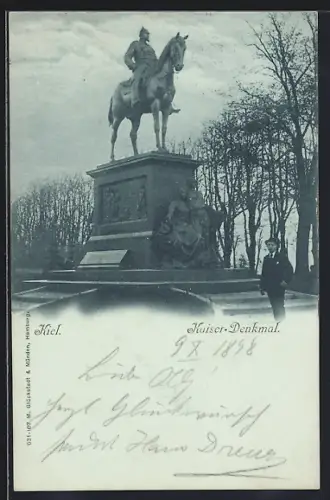 Kiel.
Kaiser-Denkmal.
9 X 1898
Liebe
Herzl. Glückwünsch
sendet Hans
Glückstadt & Münden, Hamburg.